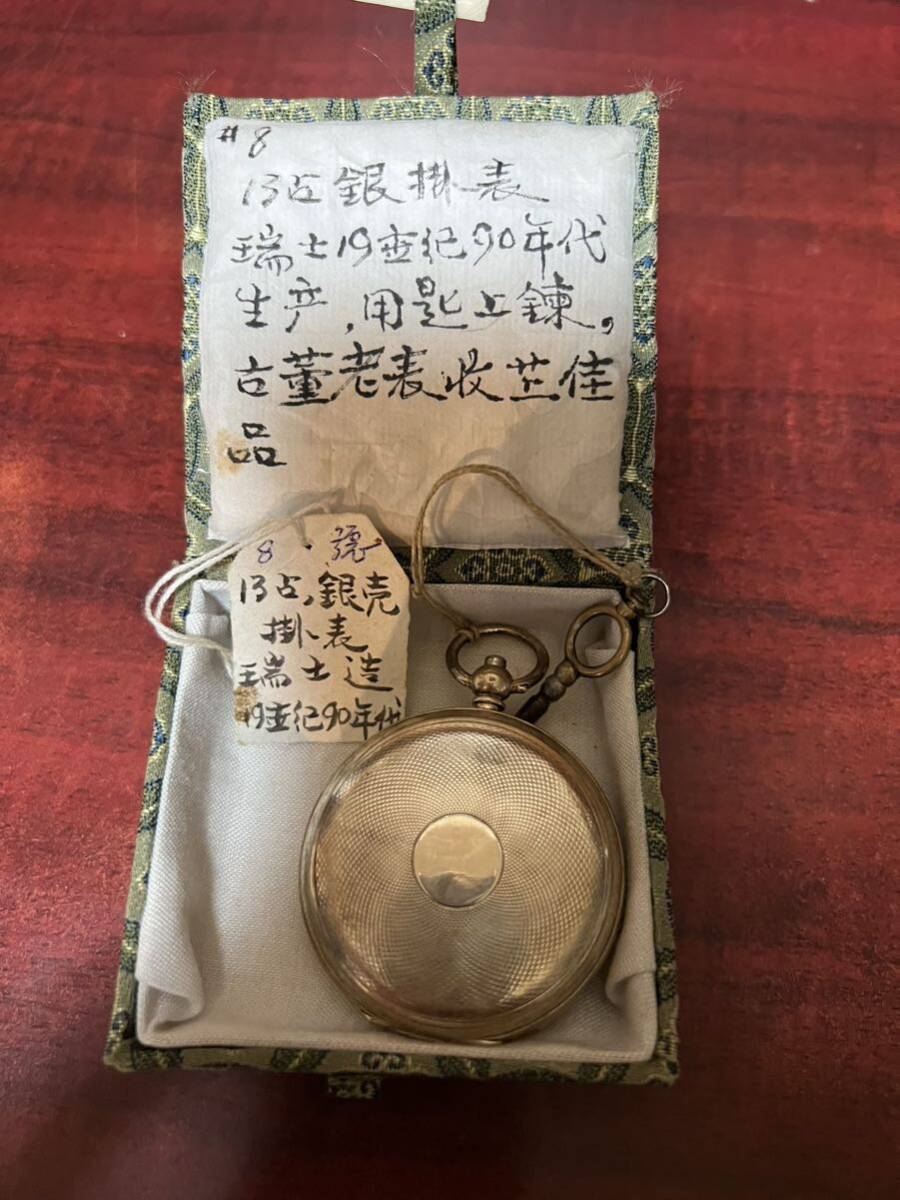 #8
13占銀掛表
瑞士19世纪90年代
生产,用匙上鍊。
古董老表收芷佳
品
8.號
13占,銀壳
掛表
瑞士造
19世纪90年代